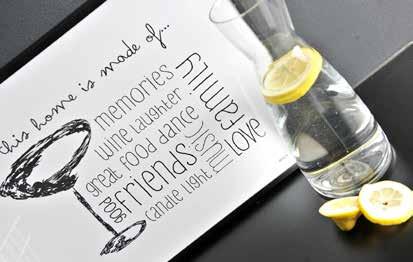 this home is made of...
memories
wine laughter
great food dance
good friends
candle light
music
family
love